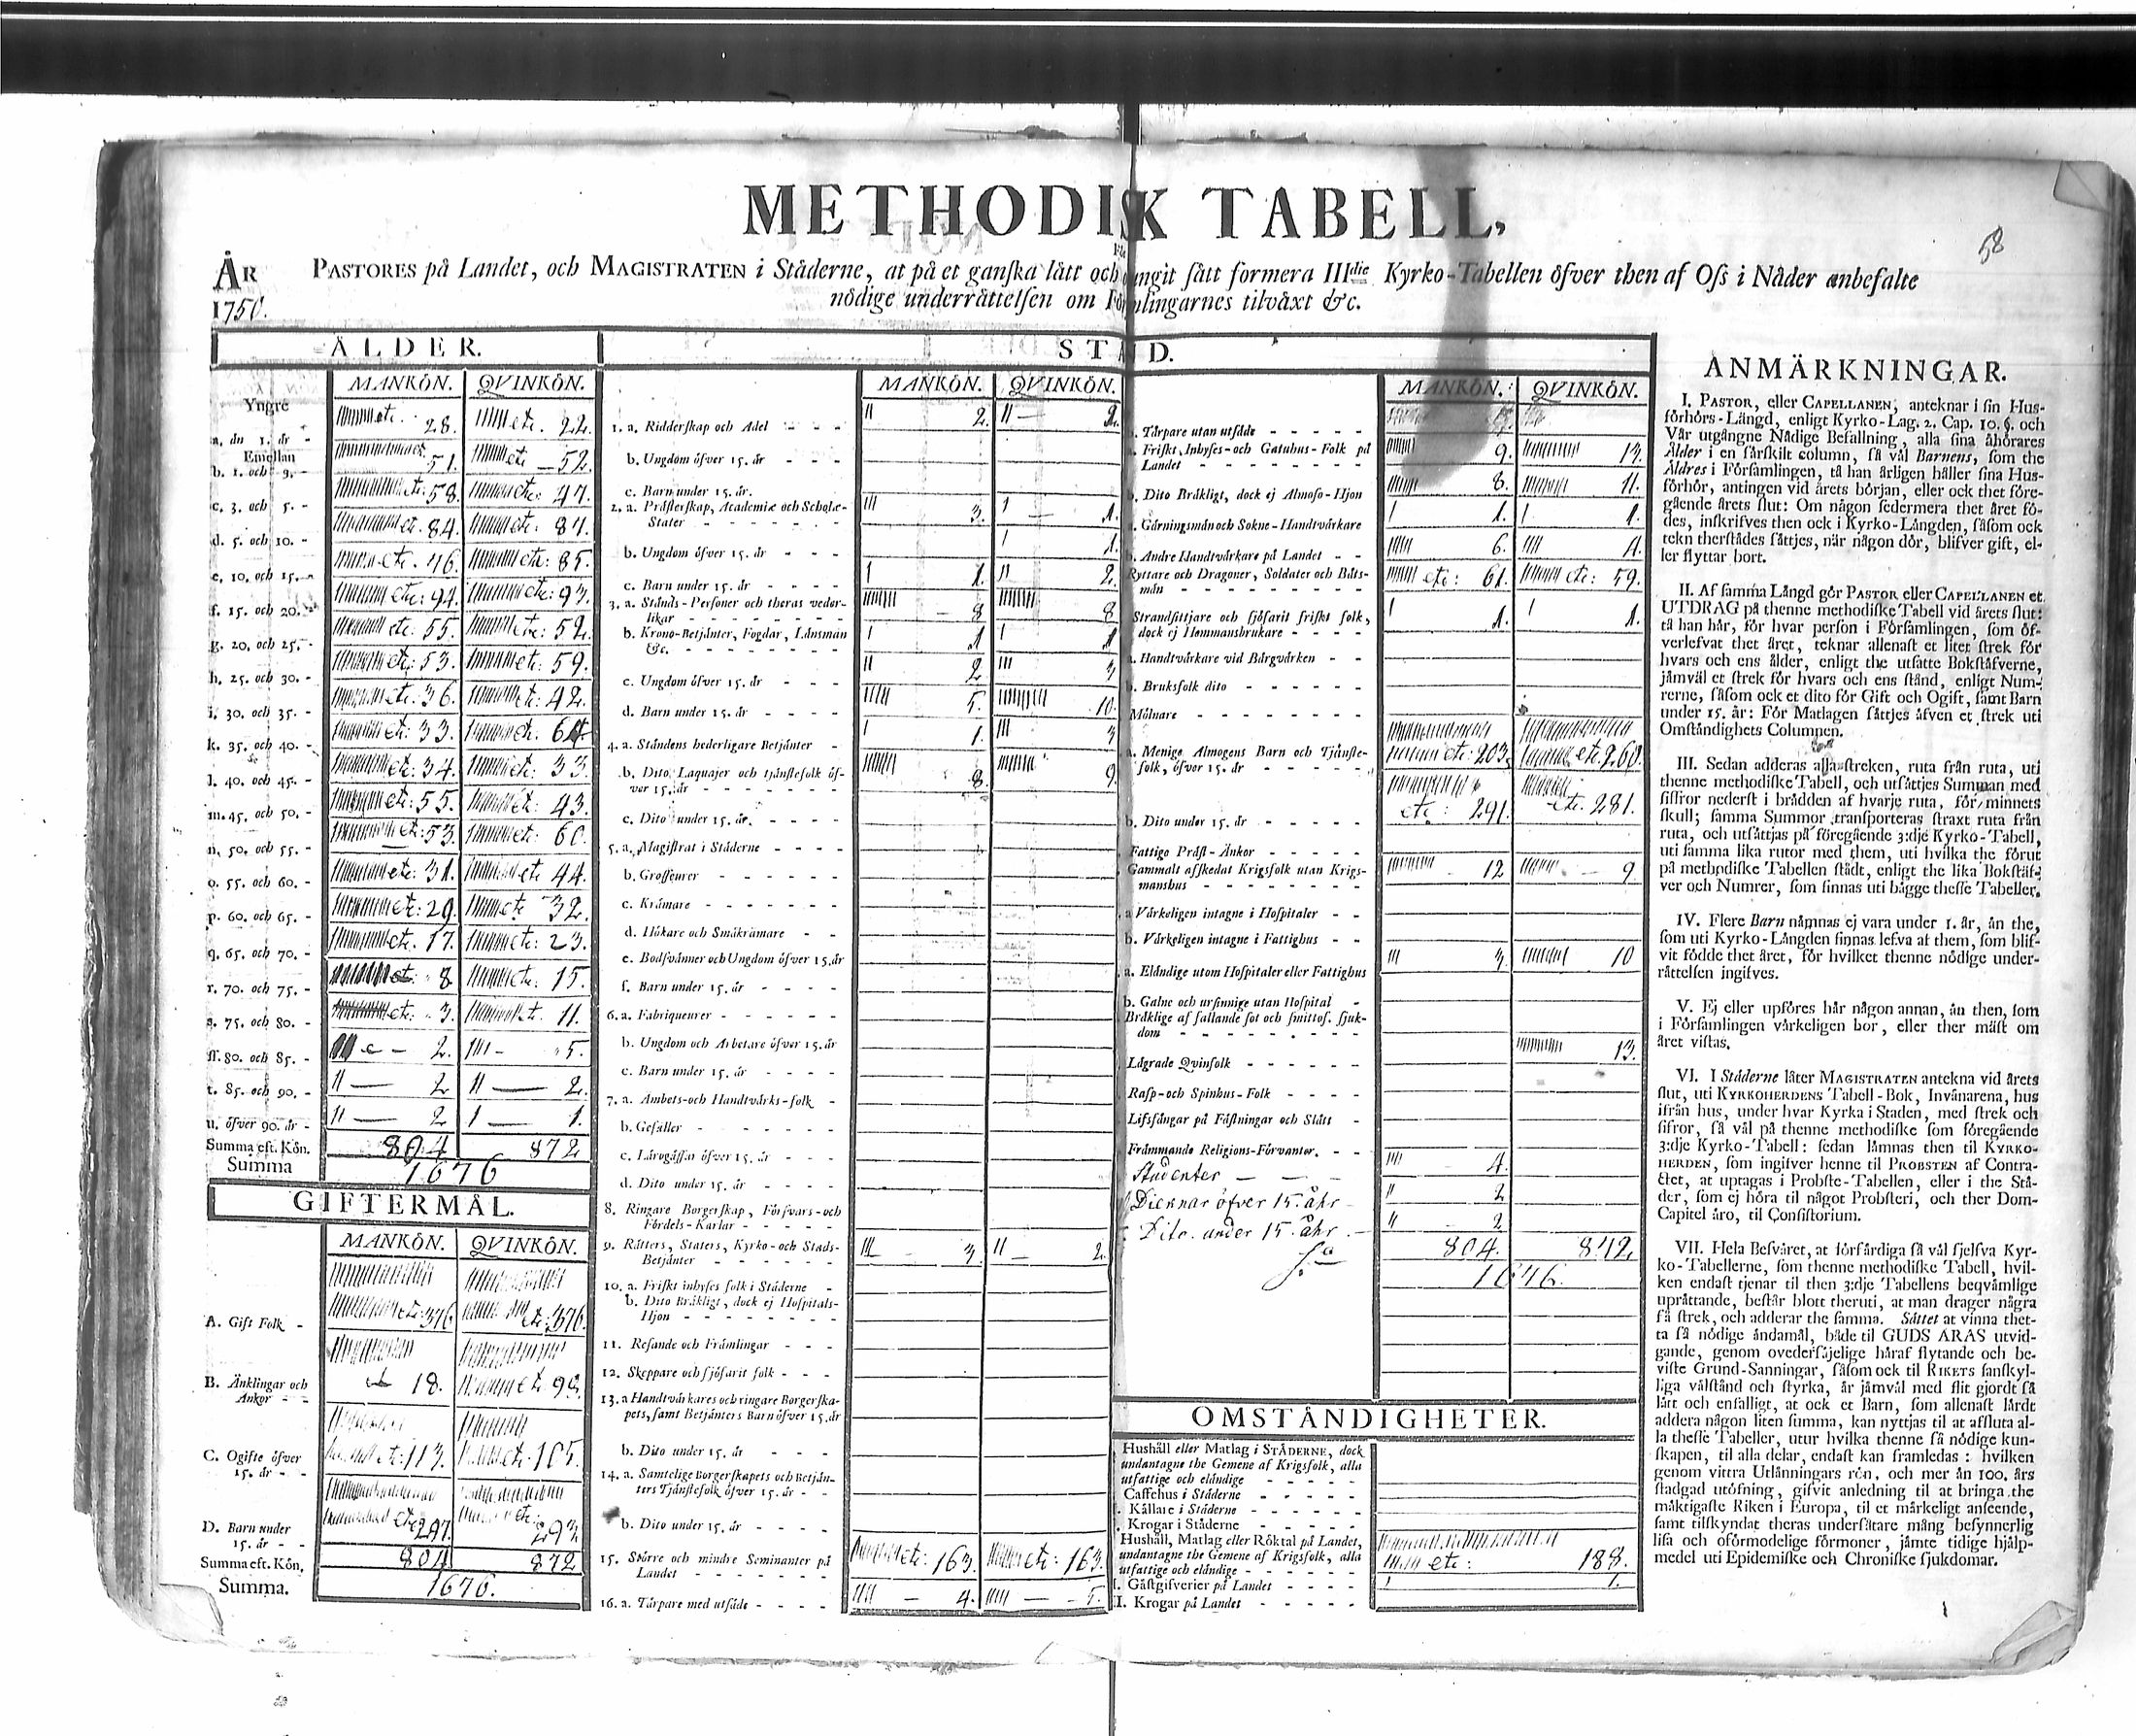 METHODISK TABELL,
58
ÅR PASTORES på Landet, och MAGISTRATEN i Städerne, at på et ganska lätt och sätt formera IIIdie Kyrko-Tabellen öfver then af Oss i Nåder anbefalte
1750. nödige underrättelsen om tilväxt &c.
ÅLDER.
MANKÖN. QVINKÖN.
Yngre
a. än 1. år - etc. 28. etc. 22.
Emellan
b. 1. och 3. - 51. etc - 52.
c. 3. och 5. - etc: 58. etc: 47.
d. 5. och 10. - etc. 84. etc: 87.
e. 10. och 15. - etc. 46. etc: 85.
f. 15. och 20. - etc: 94. etc: 93.
g. 20. och 25. - etc: 55. etc: 52.
h. 25. och 30. - etc: 53. etc: 59.
i. 30. och 35. - etc: 36. et: 42.
k. 35. och 40. - etc: 33. etc.
l. 40. och 45. - etc: 34. etc: 33.
m. 45. och 50. - etc: 55. etc: 43.
n. 50. och 55. - et: 53. et: 60.
o. 55. och 60. - etc: 31. etc 44.
p. 60. och 65. - etc: 29. etc 32.
q. 65. och 70. - etc. 17. etc: 23.
r. 70. och 75. - 8 etc: 15.
s. 75. och 80. - etc: 3. et. 11.
ſſ. 80. och 85. - 2. III - 5.
t. 85. och 90. - II — 2 II — 2.
u. öfver 90. år - II — 2 I — 1.
Summa eft. Kön. 804 872
Summa 1676
GIFTERMÅL.
MANKÖN. QVINKÖN.
A. Gift Folk - etc: 376 et: 376.
B. Änklingar och
Änkor - - 18. et: 98.
C. Ogifte öfver
15. år - - et: 113. et. 105.
D. Barn under
15. år - - etc 297. etc: 293
Summa eft. Kön, 804 872
Summa. 1676.
STÅND.
MANKÖN. QVINKÖN.
1. a. Ridderskap och Adel - - - II 2. II — 2.
b. Ungdom öfver 15. år - - -
c. Barn under 15. år.
2. a. Prästerskap, Academiæ och Scholæ-
Stater - - - - - - III 3. I — 1.
b. Ungdom öfver 15. år - - - I 1.
c. Barn under 15. år - - - - I 1. II 2.
3. a. Stånds-Personer och theras veder-
likar - - - - - - - 8 8
b. Krono-Betjänter, Fogdar, Länsmän
&c. - - - - - - - I 1 I 1
c. Ungdom öfver 15. år - - - II 2 III 3
d. Barn under 15. år - - - - IIIII 5. 10.
4. a. Ståndens hederligare Betjänter - I 1. III 3
b. Dito, Laquajer och tjänstefolk öf-
ver 15. år - - - - - - 8. 9
c. Dito under 15. år. - - - -
5. a. Magistrat i Städerne - - -
b. Grosseurer - - - - - -
c. Krämare - - - - - -
d. Hökare och Småkrämare - -
e. Bodsvänner och Ungdom öfver 15. år
f. Barn under 15. år - - - -
6. a. Fabriqueurer - - - - -
b. Ungdom och Arbetare öfver 15. år
c. Barn under 15. år - - - -
7. a. Ämbets-och Handtvärks-folk -
b. Gesäller - - - - - -
c. Lärogåssar öfver 15. år - - -
d. Dito under 15. år - - - -
8. Ringare Borgerskap, Försvars-och
Fördels-Karlar - - - - -
9. Rätters, Staters, Kyrko-och Stads-
Betjänter - - - - - - III — 3 II — 2.
10. a. Friskt inhyses folk i Städerne -
b. Dito Bräkligt, dock ej Hospitals-
Hjon - - - - - - -
11. Resande och Främlingar - - -
12. Skeppare och sjöfarit folk - - -
13. a Handtvärkares och ringare Borgerska-
pets, samt Betjänters Barn öfver 15. år
b. Dito under 15. år - - -
14. a. Samtelige Borgerskapets och Betjän-
ters Tjänstefolk öfver 15. år - -
b. Dito under 15. år - - - -
15. Större och mindre Heminanter på
Landet - - - - - - - etc: 163. etc: 163.
16. a. Tårpare med utsäde - - - - IIII — 4. IIIII — 5.
MANKÖN. QVINKÖN.
Tårpare utan utsäde - - - - -
Friskt, Inhyses-och Gatuhus-Folk på
Landet - - - - - - - 9. 13.
b. Dito Bräkligt, dock ej Almoso-Hjon 8. 11.
Gärningsmän och Sokne-Handtvärkare I 1. I 1.
b. Andre Handtvärkare på Landet - - 6. IIII 4.
Ryttare och Dragoner, Soldater och Båts-
män - - - - - - - etc: 61. etc: 59.
Strandsittjare och sjöfarit friskt folk,
dock ej Hemmansbrukare - - - - I 1. I 1.
a. Handtvärkare vid Bärgvärken - -
b. Bruksfolk dito - - - - - -
Mölnare - - - - - - -
a. Menige Almogens Barn och Tjänste-
folk, öfver 15. år - - - - - etc: 203. etc. 260.
b. Dito under 15. år - - - - - etc: 291. etc. 281.
Fattige Präst-Änkor - - - - -
Gammalt afskedat Krigsfolk utan Krigs-
manshus - - - - - - - 12 - 9
a Värkeligen intagne i Hospitaler - -
b. Värkeligen intagne i Fattighus - -
a. Eländige utom Hospitaler eller Fattighus III 3. 10
b. Galne och ursinnige utan Hospital -
Bräklige af fallande sot och smittos. sjuk-
dom - - - - - - -
Lägrade Qvinfolk - - - - - 13.
Rasp-och Spinhus-Folk - - - -
Lifsfångar på Fästningar och Slått -
Främmande Religions-Förvanter. - -
Studenter — — — IIII — 4.
Dieknar öfver 15. åhr — II — 2
Dito. under 15. åhr. — II — 2
Sa 804. 872
1676.
OMSTÄNDIGHETER.
Hushåll eller Matlag i STÄDERNE, dock
undantagne the Gemene af Krigsfolk, alla
utfattige och eländige - - - - -
Caffehus i Städerne - - - - -
Källare i Städerne - - - - -
Krogar i Städerne - - - - -
Hushåll, Matlag eller Röktal på Landet,
undantagne the Gemene af Krigsfolk, alla
utfattige och eländige - - - - - etc: 188.
Gästgifverier på Landet - - - - I 1.
Krogar på Landet - - - - -
ANMÄRKNINGAR.
I. PASTOR, eller CAPELLANEN, anteknar i sin Hus-
förhörs-Längd, enligt Kyrko-Lag. 2. Cap. 10. §. och
Vår utgångne Nådige Befallning, alla sina åhörares
Ålder i en särskilt column, så väl Barnens, som the
Äldres i Församlingen, tå han årligen håller sina Hus-
förhör, antingen vid årets början, eller ock thet före-
gående årets slut: Om någon sedermera thet året fö-
des, inskrifves then ock i Kyrko-Längden, såsom ock
tekn therstädes sättjes, när någon dör, blifver gift, el-
ler flyttar bort.
II. Af samma Längd gör PASTOR eller CAPELLANEN et
UTDRAG på thenne methodiske Tabell vid årets slut:
tå han här, för hvar person i Församlingen, som öf-
verlefvat thet året, teknar allenast et litet strek för
hvars och ens ålder, enligt the utsatte Bokstäfverne,
jämväl et strek för hvars och ens stånd, enligt Num-
rerne, såsom ock et dito för Gift och Ogift, samt Barn
under 15. år: För Matlagen sättjes äfven et strek uti
Omständighets Columnen.
III. Sedan adderas alla streken, ruta från ruta, uti
thenne methodiske Tabell, och utsättjes Summan med
siffror nederst i brädden af hvarje ruta, för minnets
skull; samma Summor transporteras straxt ruta från
ruta, och utsättjas på föregående 3:dje Kyrko-Tabell,
uti samma lika rutor med them, uti hvilka the förut
på methodiske Tabellen stådt, enligt the lika Bokstäf-
ver och Numrer, som finnas uti bägge thesse Tabeller.
IV. Flere Barn nämnas ej vara under 1. år, än the,
som uti Kyrko-Längden finnas lefva af them, som blif-
vit födde thet året, för hvilket thenne nödige under-
rättelsen ingifves.
V. Ej eller upföres här någon annan, än then, som
i Församlingen värkeligen bor, eller ther mäst om
året vistas.
VI. I Städerne låter MAGISTRATEN antekna vid årets
slut, uti KYRKOHERDENS Tabell-Bok, Invånarena, hus
ifrån hus, under hvar Kyrka i Staden, med strek och
sifror, så väl på thenne methodiske som föregående
3:dje Kyrko-Tabell: sedan lämnas then til KYRKO-
HERDEN, som ingifver henne til PROBSTEN af Contra-
ctet, at uptagas i Probste-Tabellen, eller i the Stä-
der, som ej höra til något Probsteri, och ther Dom-
Capitel äro, til Consistorium.
VII. Hela Besväret, at förfärdiga så väl sjelfva Kyr-
ko-Tabellerne, som thenne methodiske Tabell, hvil-
ken endast tjenar til then 3:dje Tabellens beqvämlige
uprättande, består blott theruti, at man drager några
få strek, och adderar the samma. Sättet at vinna thet-
ta så nödige ändamål, både til GUDS ÄRAS utvid-
gande, genom ovedersäjelige häraf flytande och be-
viste Grund-Sanningar, såsom ock til RIKETS fanskyl-
liga välstånd och styrka, är jämväl med flit gjordt så
lätt och enfalligt, at ock et Barn, som allenast lärdt
addera någon liten summa, kan nyttjas til at affluta al-
la thesse Tabeller, utur hvilka thenne så nödige kun-
skapen, til alla delar, endast kan framledas: hvilken
genom vittra Utlänningars rön, och mer än 100. års
stadgad utöfning, gifvit anledning til at bringa the
mäktigaste Riken i Europa, til et märkeligt anseende,
samt tilskyndat theras undersåtare mång besynnerlig
lisa och oförmodelige förmoner, jämte tidige hjälp-
medel uti Epidemiske och Chroniske sjukdomar.